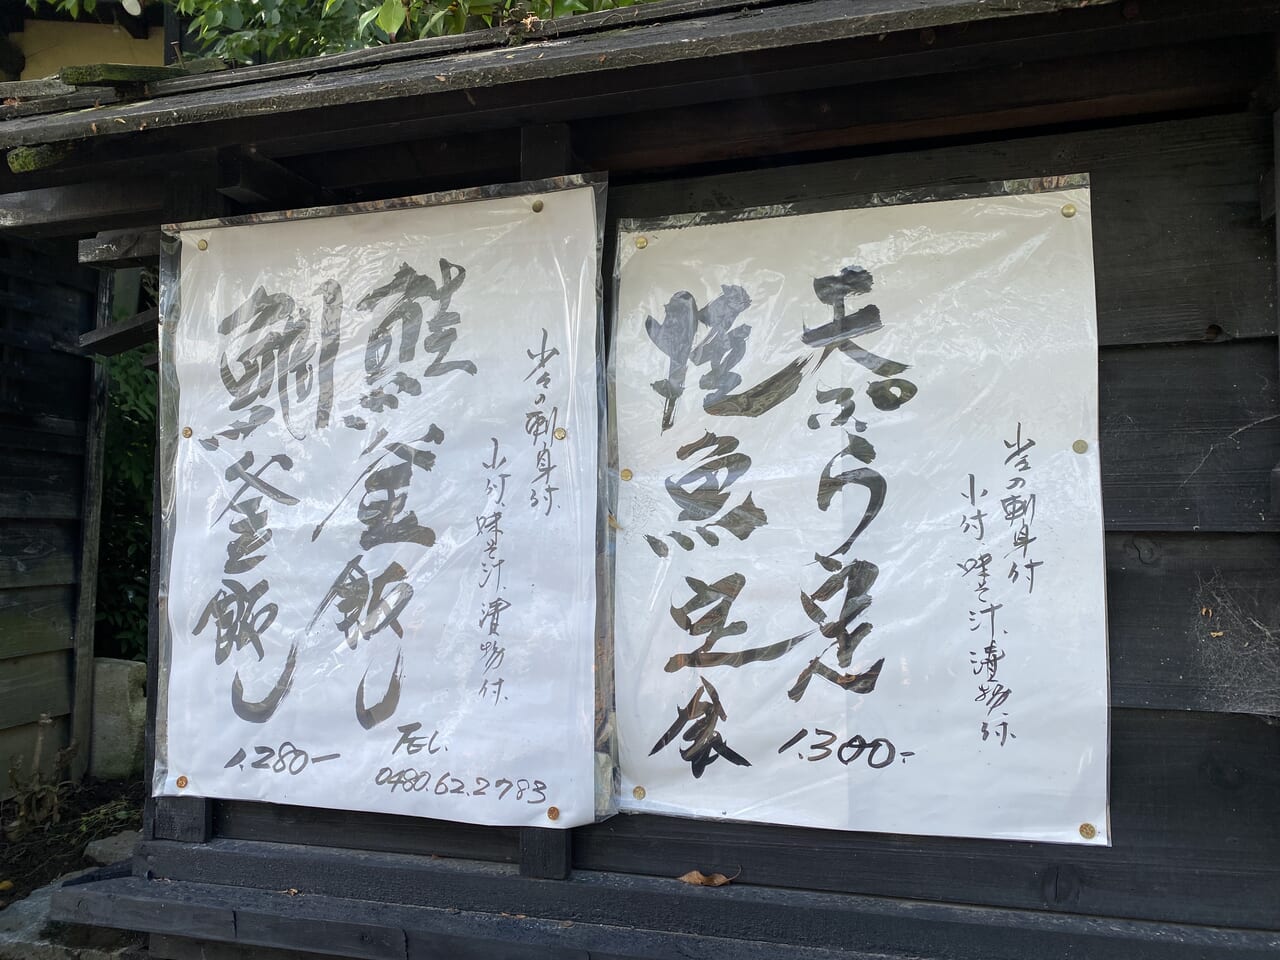 少々の刺身付
小付、味そ汁、漬物付、
天ぷら定
焼魚定食
1,300-
少々の刺身付、
小付、味そ汁、漬物付、
鮭釜飯し
鯛釜飯し
1,280-
TEL.
0480.62.2783